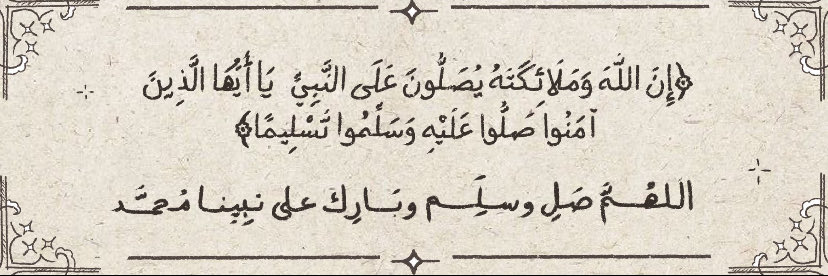 ﴿إِنَّ اللَّهَ وَمَلَائِكَتَهُ يُصَلُّونَ عَلَى النَّبِيِّ يَا أَيُّهَا الَّذِينَ
آمَنُوا صَلُّوا عَلَيْهِ وَسَلِّمُوا تَسْلِيمًا﴾
اللهُمَّ صَلِ وسلِّم وبَارِك على نبِينا مُحمَّد